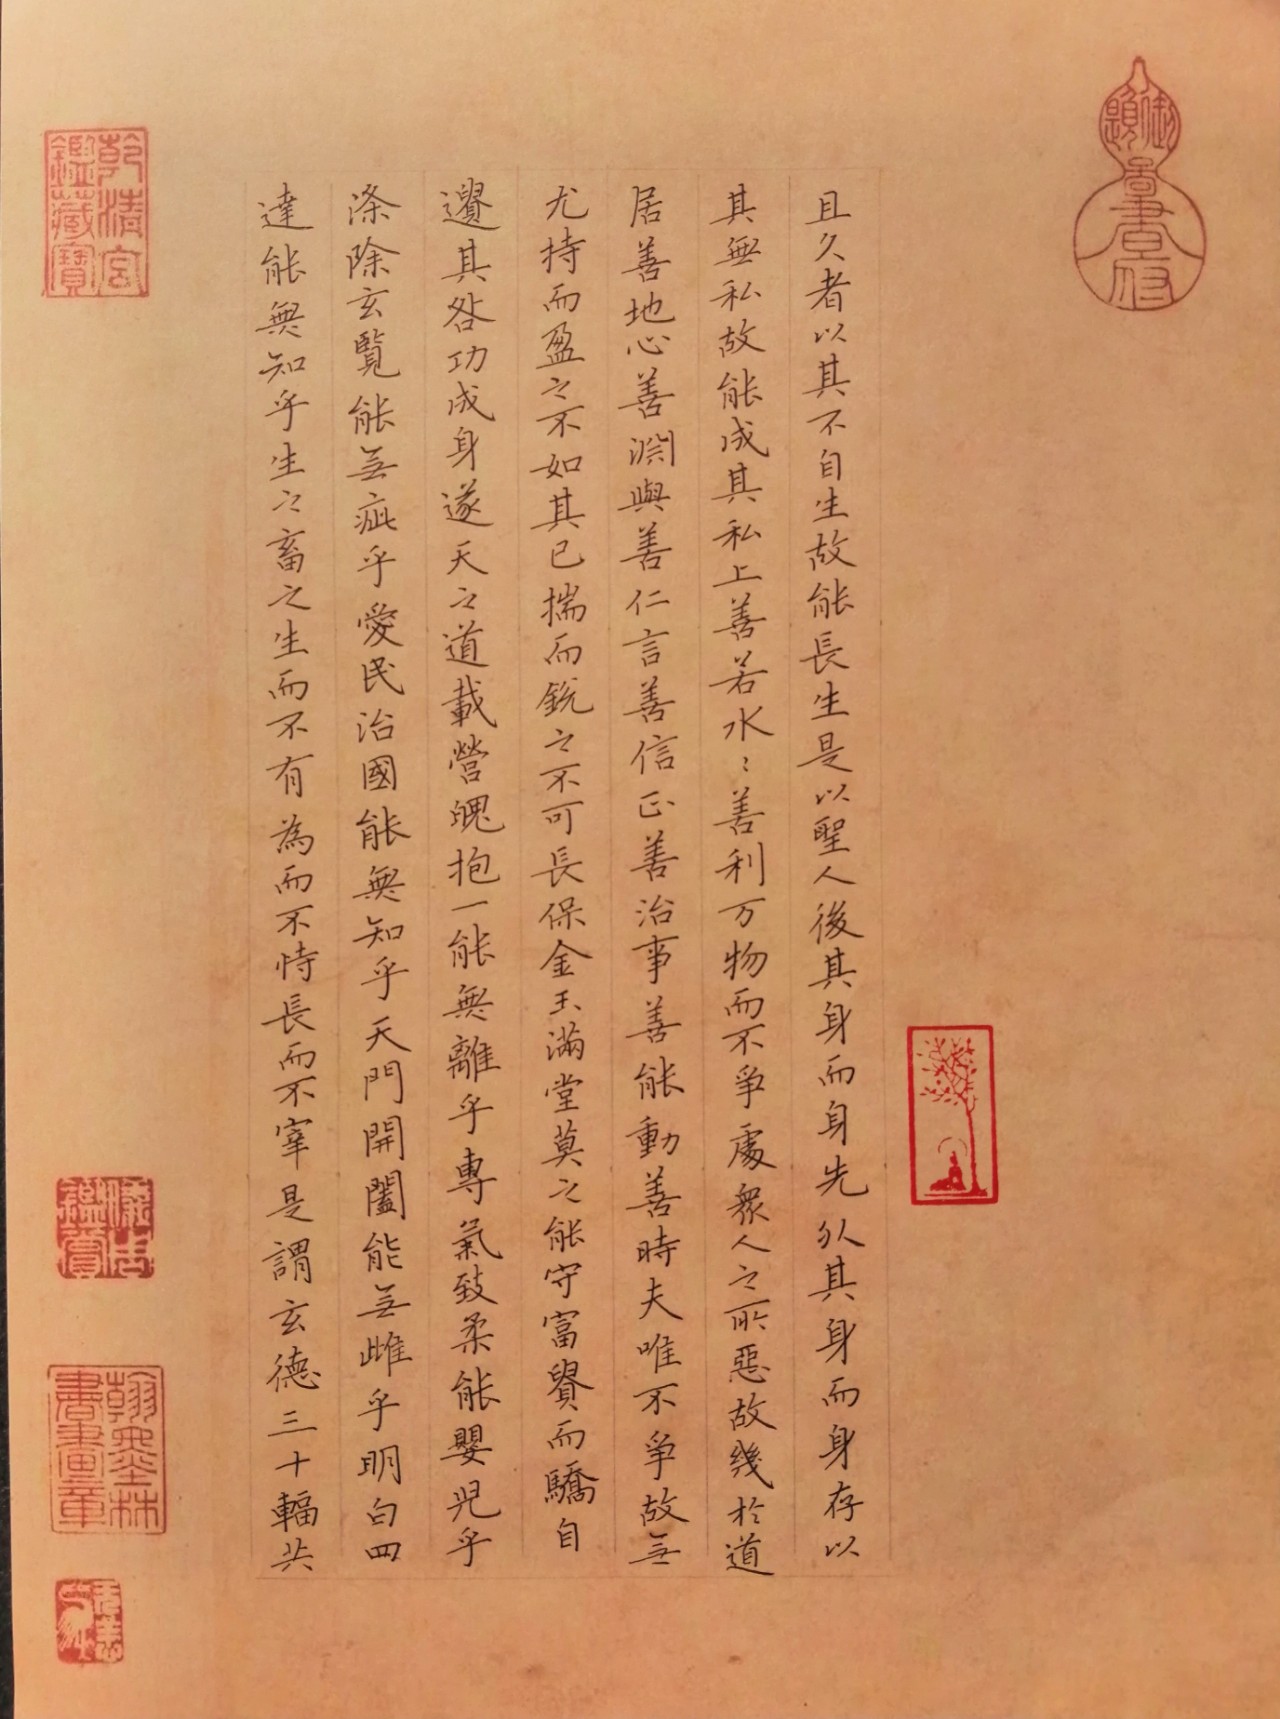 且久者以其不自生故能長生是以聖人後其身而身先外其身而身存以
其無私故能成其私上善若水〻善利万物而不爭處衆人之所惡故幾於道
居善地心善淵與善仁言善信正善治事善能動善時夫唯不爭故無
尤持而盈之不如其已揣而銳之不可長保金玉滿堂莫之能守富貴而驕自
遺其咎功成身遂天之道載營魄抱一能無離乎專氣致柔能嬰児乎
滌除玄覧能無疵乎愛民治國能無知乎天門開闔能無雌乎明白四
達能無知乎生之畜之生而不有為而不恃長而不宰是謂玄德三十輻共
御題
畫書府
乾清宮
鑑藏寶
鑑賞
翰墨林
書畫章